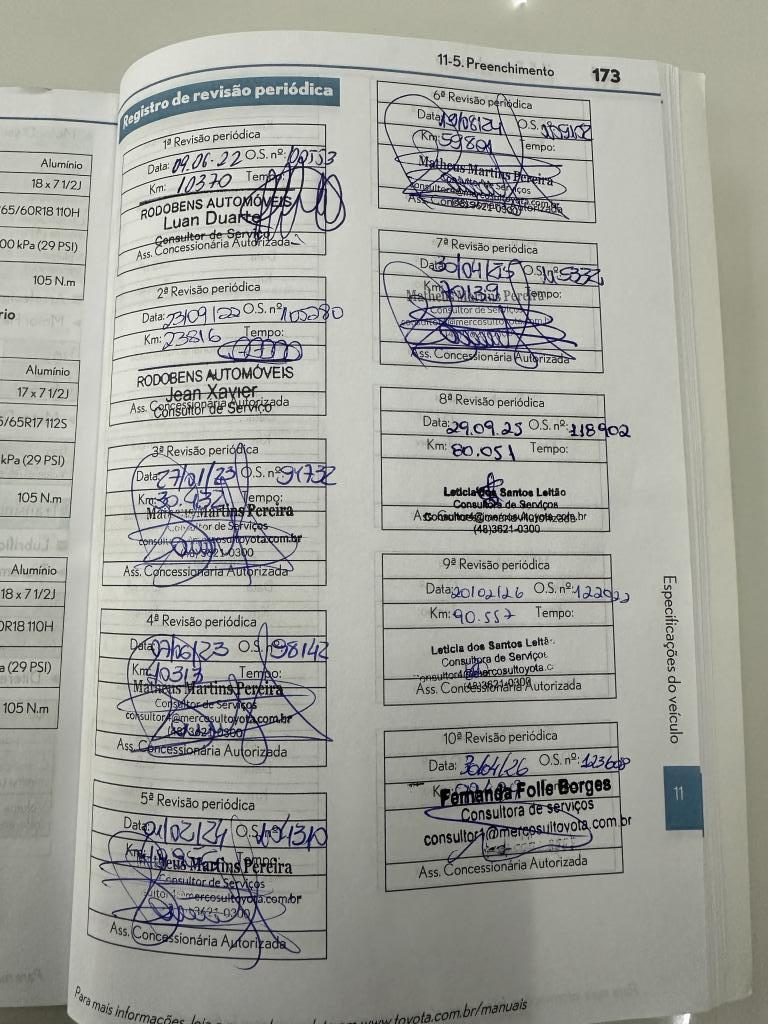 11-5. Preenchimento 173
Alumínio
18 x 7 1/2J
65/60R18 110H
00 kPa (29 PSI)
105 N.m
rio
Alumínio
17 x 7 1/2J
5/65R17 112S
kPa (29 PSI)
105 N.m
Alumínio
18 x 7 1/2J
0R18 110H
a (29 PSI)
105 N.m
Registro de revisão periódica
1ª Revisão periódica
Data: 09.06.22 O.S. nº:
Km: 10370 Tempo:
RODOBENS AUTOMÓVEIS
Luan Duarte
Consultor de Serviço
Ass. Concessionária Autorizada
2ª Revisão periódica
Data: 23/09/22 O.S. nº:
Km: 23816 Tempo:
RODOBENS AUTOMÓVEIS
Jean Xavier
Consultor de Serviço
Ass. Concessionária Autorizada
3ª Revisão periódica
Data: 27/01/23 O.S. nº: 94732
Km: Tempo:
Matheus Martins Pereira
Consultor de Serviços
(48)3621-0300
Ass. Concessionária Autorizada
4ª Revisão periódica
Data: 07/06/23 O.S. 98142
Km: 40313 Tempo:
Matheus Martins Pereira
Consultor de Serviços
consultor4@mercosultoyota.com.br
(48)3621-0300
Ass. Concessionária Autorizada
5ª Revisão periódica
Data: O.S. nº: 104310
Km: Tempo:
Matheus Martins Pereira
Consultor de Serviços
@mercosultoyota.com.br
3621-0300
Ass. Concessionária Autorizada
6ª Revisão periódica
Data: O.S. nº:
Km: 59801 Tempo:
Matheus Martins Pereira
Consultor de Serviços
(48)3621-0300
Ass. Autorizada
7ª Revisão periódica
Data: 30/04/25 O.S. nº:
Km: 70139 Tempo:
Matheus Martins Pereira
Consultor de Serviços
@mercosultoyota.com.br
Ass. Concessionária Autorizada
8ª Revisão periódica
Data: 29.09.25 O.S. nº: 118902
Km: 80.051 Tempo:
Leticia dos Santos Leitão
Consultora de Serviços
Consultor4@mercosultoyota.com.br
(48)3621-0300
9ª Revisão periódica
Data: 20/02/26 O.S. nº:
Km: 90.557 Tempo:
Leticia dos Santos Leitã
Consultora de Serviços
onsultor4@mercosultoyota.c
(48)3621-0300
Ass. Concessionária Autorizada
10ª Revisão periódica
Data: 30/04/26 O.S. nº: 123608
Fernanda Folle Borges
Consultora de serviços
consultor1@mercosultoyota.com.br
Ass. Concessionária Autorizada
Especificações do veículo
11
Para mais informações,
www.toyota.com.br/manuais